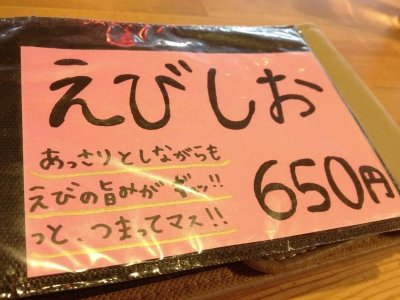 えびしお
あっさりとしながらも
えびの旨みが ギッ!!
っと、つまってマス!!
650円